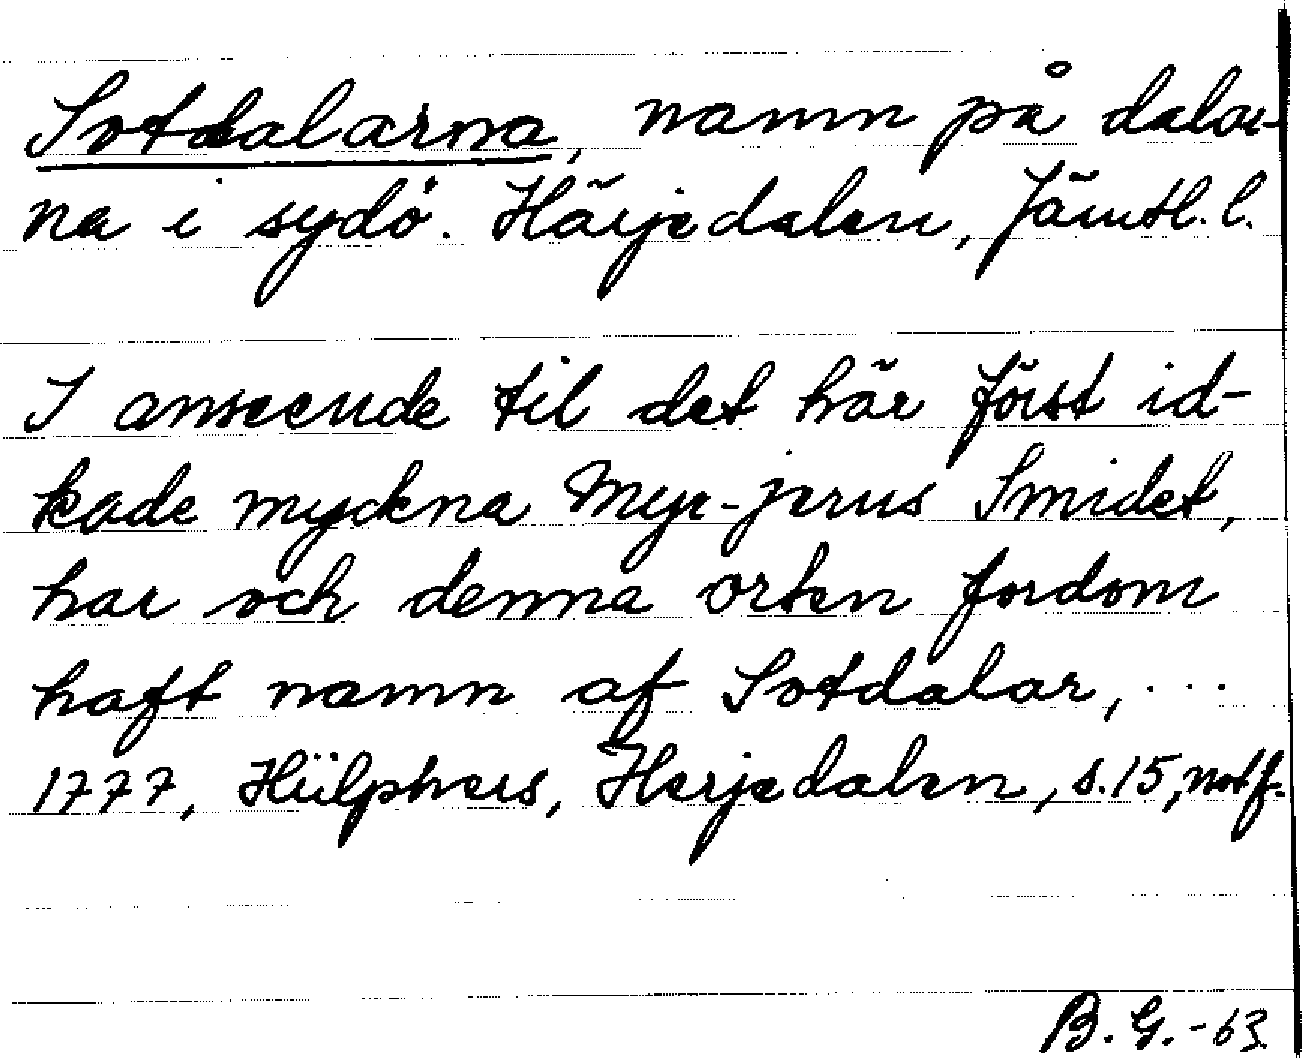 Sotdalarna, namn på dalar-
na i sydö. Härjedalen, Jämtl. l.
I anseende til det här först id-
kade myckna Myr-jerns Smidet,
har och denna orten fordom
haft namn af Sotdalar, ...
1777, Hülphers, Herjedalen, s. 15, not f.
B. G. -63